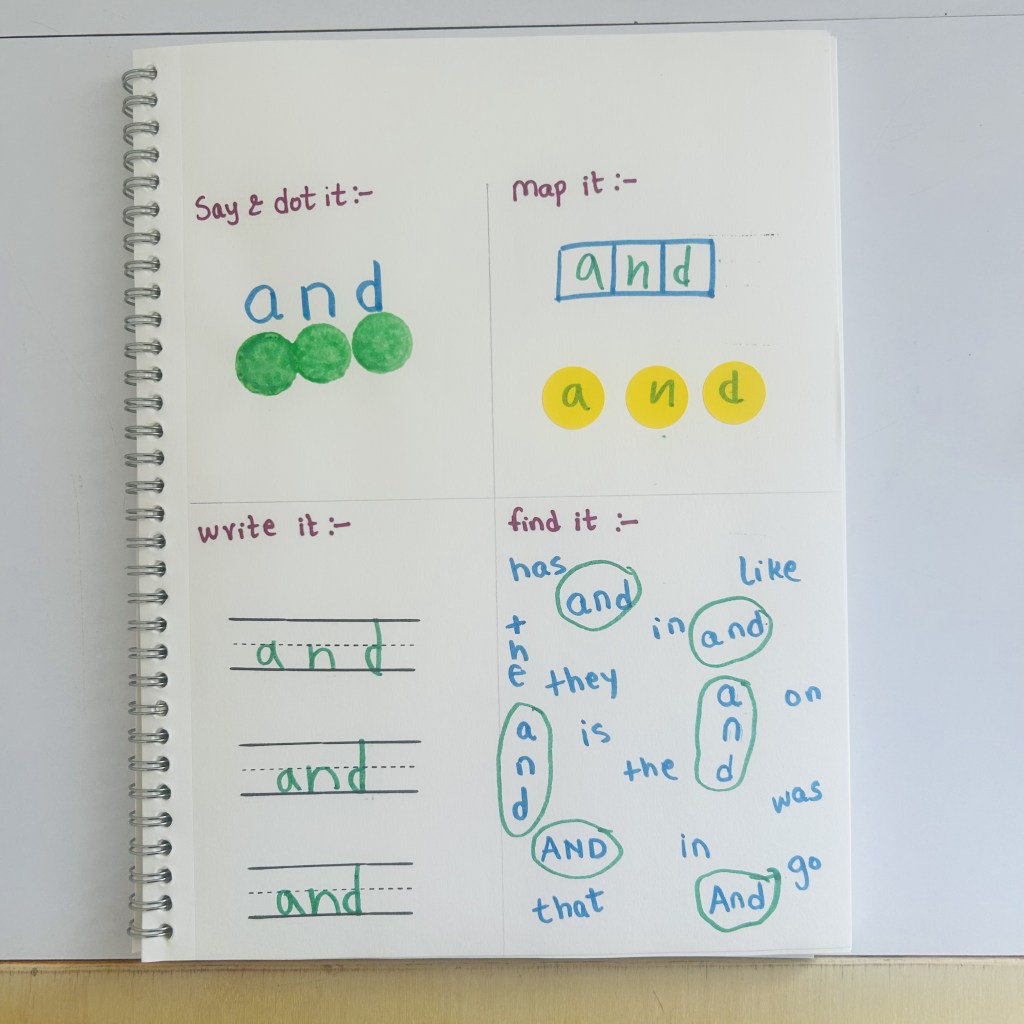 Say & dot it :-
and
map it :-
a n d
a n d
write it :-
and
and
and
find it :-
has
and
like
the
in
and
they
and
on
and
is
the
was
AND
in
go
that
And